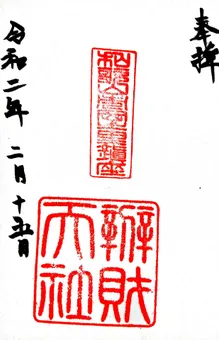 奉拝
辨財天社
令和二年 二月十五日